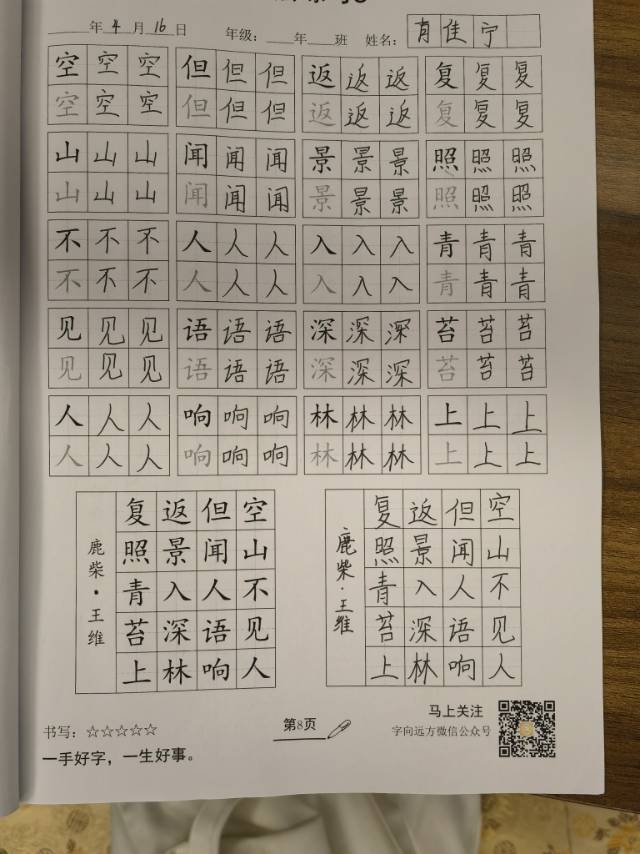 年4月16日 年级: 年 班 姓名: 肖佳宁
空空空 但但但 返返返 复复复
空空空 但但但 返返返 复复复
山山山 闻闻闻 景景景 照照照
山山山 闻闻闻 景景景 照照照
不不不 人人人 入入入 青青青
不不不 人人人 入入入 青青青
见见见 语语语 深深深 苔苔苔
见见见 语语语 深深深 苔苔苔
人人人 响响响 林林林 上上上
人人人 响响响 林林林 上上上
空山不见人
但闻人语响
返景入深林
复照青苔上
鹿柴·王维
空山不见人
但闻人语响
返景入深林
复照青苔上
鹿柴·王维
书写: ☆☆☆☆☆
一手好字,一生好事。
第8页
马上关注
字向远方微信公众号